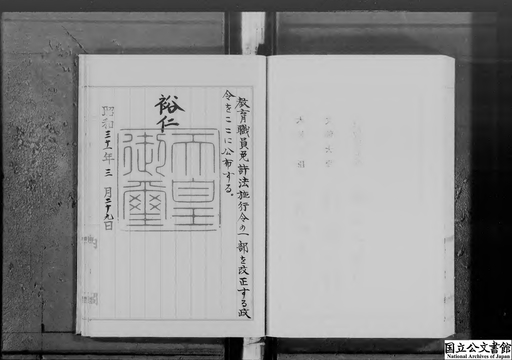 教育職員免許法施行令の一部を改正する政
令をここに公布する。
裕仁
天皇
御璽
昭和三十年三月二十九日
国立公文書館
National Archives of Japan